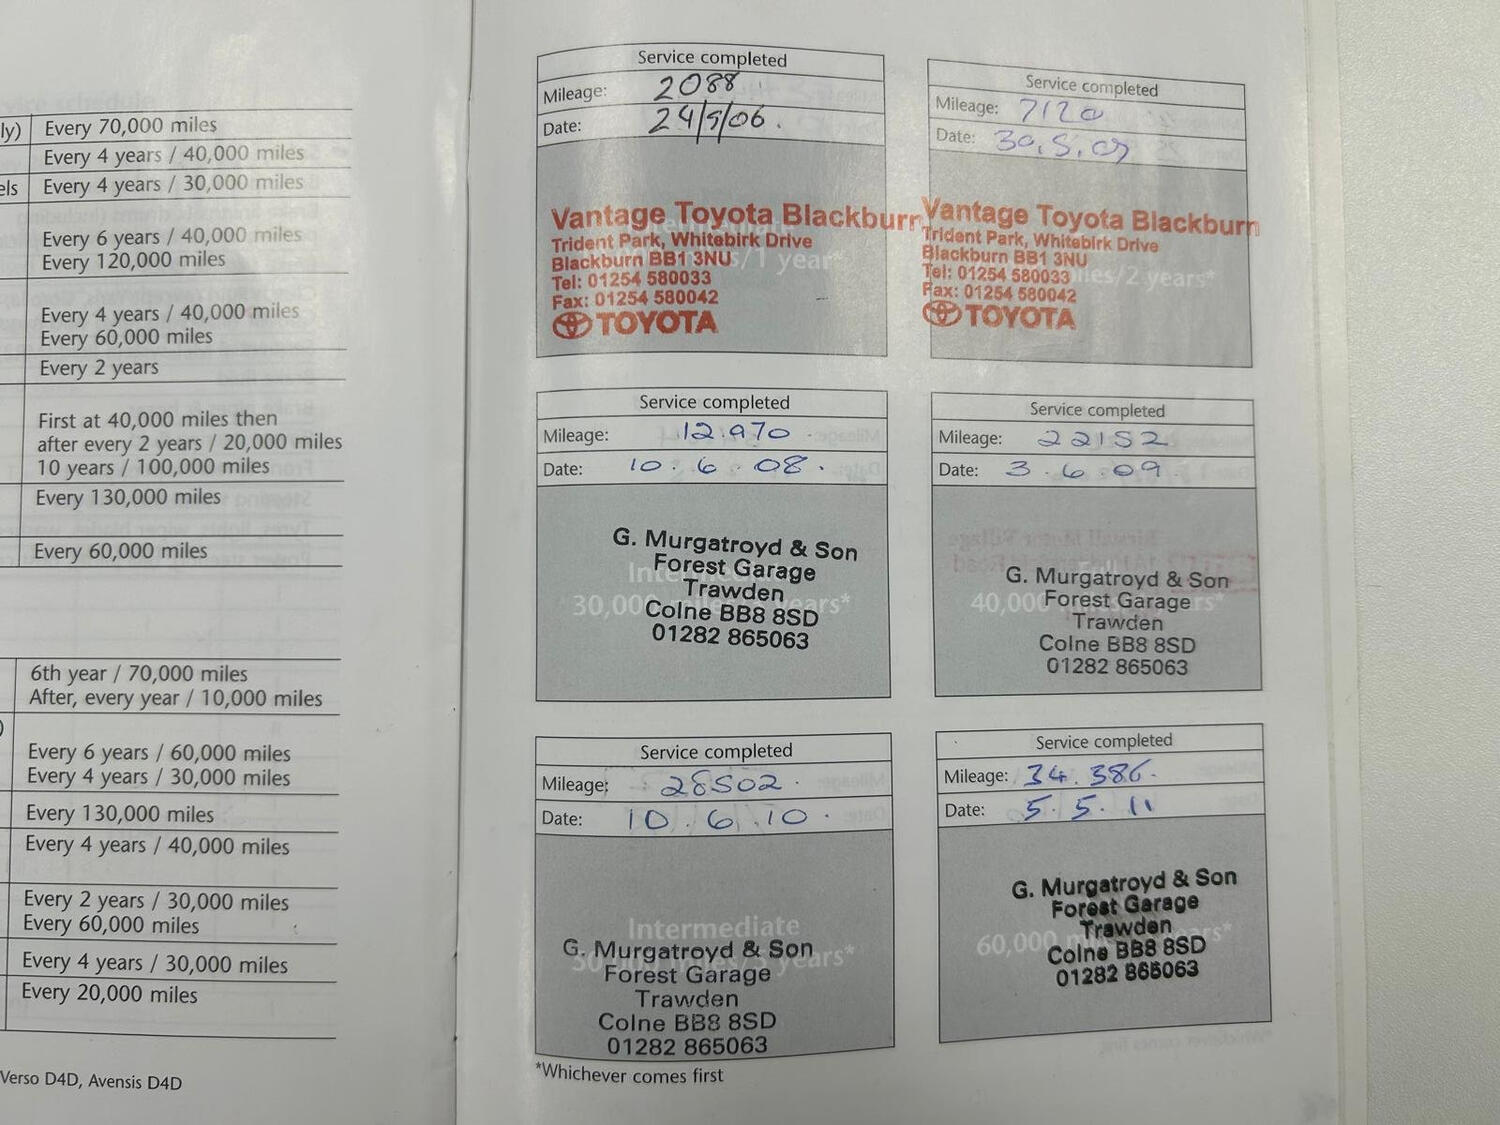 ly) Every 70,000 miles
Every 4 years / 40,000 miles
els Every 4 years / 30,000 miles
Every 6 years / 40,000 miles
Every 120,000 miles
Every 4 years / 40,000 miles
Every 60,000 miles
Every 2 years
First at 40,000 miles then
after every 2 years / 20,000 miles
10 years / 100,000 miles
Every 130,000 miles
Every 60,000 miles
6th year / 70,000 miles
After, every year / 10,000 miles
)
Every 6 years / 60,000 miles
Every 4 years / 30,000 miles
Every 130,000 miles
Every 4 years / 40,000 miles
Every 2 years / 30,000 miles
Every 60,000 miles
Every 4 years / 30,000 miles
Every 20,000 miles
Verso D4D, Avensis D4D
Service completed
Mileage: 2088
Date: 24/5/06.
Vantage Toyota Blackburn
Trident Park, Whitebirk Drive
Blackburn BB1 3NU
/1 year*
Tel: 01254 580033
Fax: 01254 580042
TOYOTA
Service completed
Mileage: 7120
Date: 30.5.07
Vantage Toyota Blackburn
Trident Park, Whitebirk Drive
Blackburn BB1 3NU
Tel: 01254 580033
les/2 years*
Fax: 01254 580042
TOYOTA
Service completed
Mileage: 12.970
Date: 10.6.08.
G. Murgatroyd & Son
Forest Garage
Intermediate
Trawden
30,000 ears*
Colne BB8 8SD
01282 865063
Service completed
Mileage: 22152
Date: 3.6.09
G. Murgatroyd & Son
Forest Garage
40,000 rs*
Trawden
Colne BB8 8SD
01282 865063
Service completed
Mileage: 28502.
Date: 10.6.10.
Intermediate
G. Murgatroyd & Son
50,000 miles/5 years*
Forest Garage
Trawden
Colne BB8 8SD
01282 865063
Service completed
Mileage: 34.386.
Date: 5.5.11
G. Murgatroyd & Son
Forest Garage
Trawden
60,000 m ars*
Colne BB8 8SD
01282 865063
*Whichever comes first